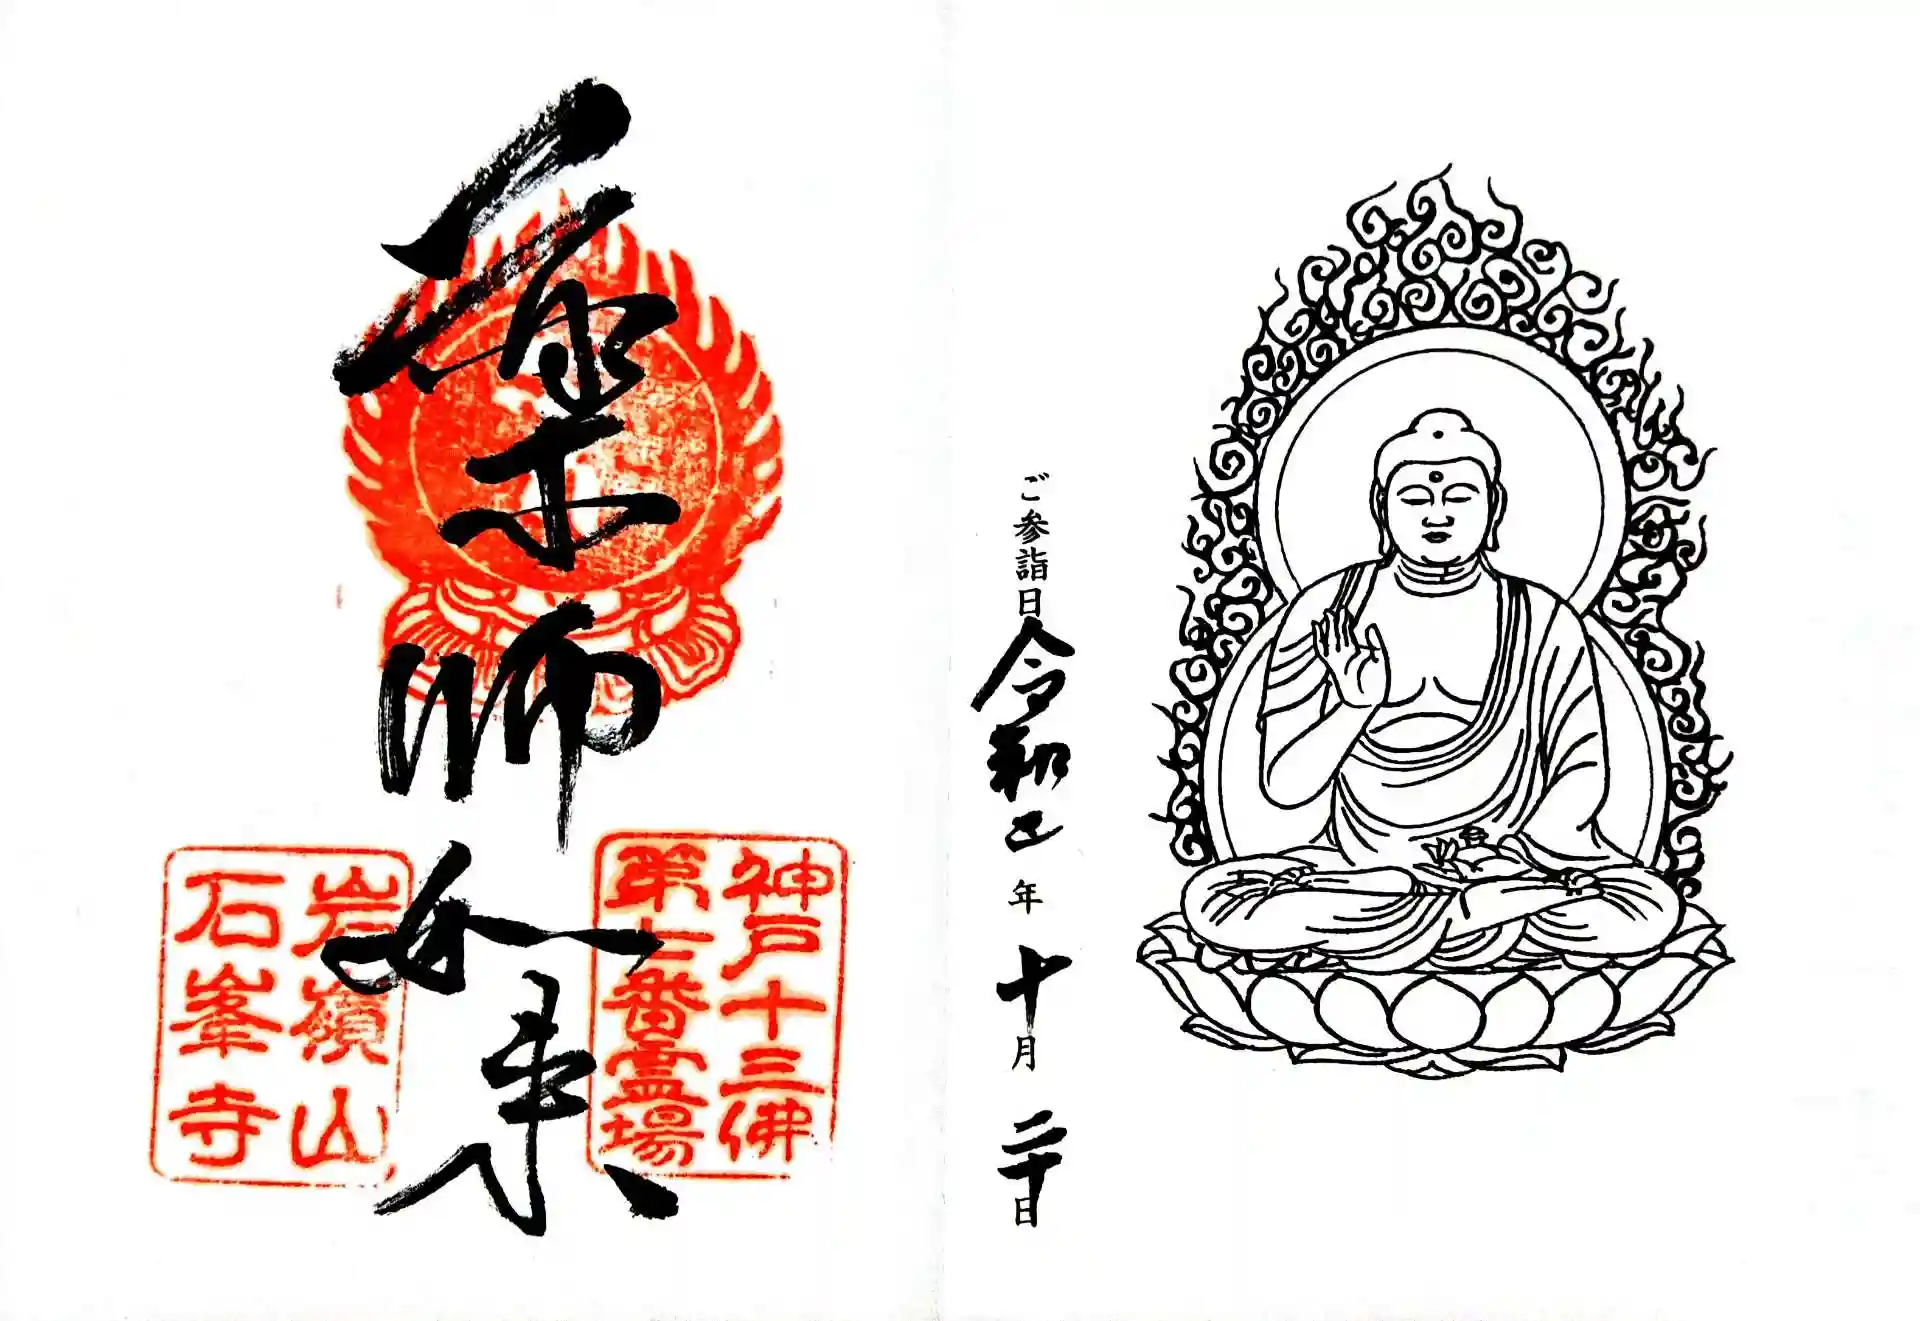 ご参詣日令和年十月二十日
神戸十三佛
第七番霊場
薬師如来
岩嶺山
石峯寺